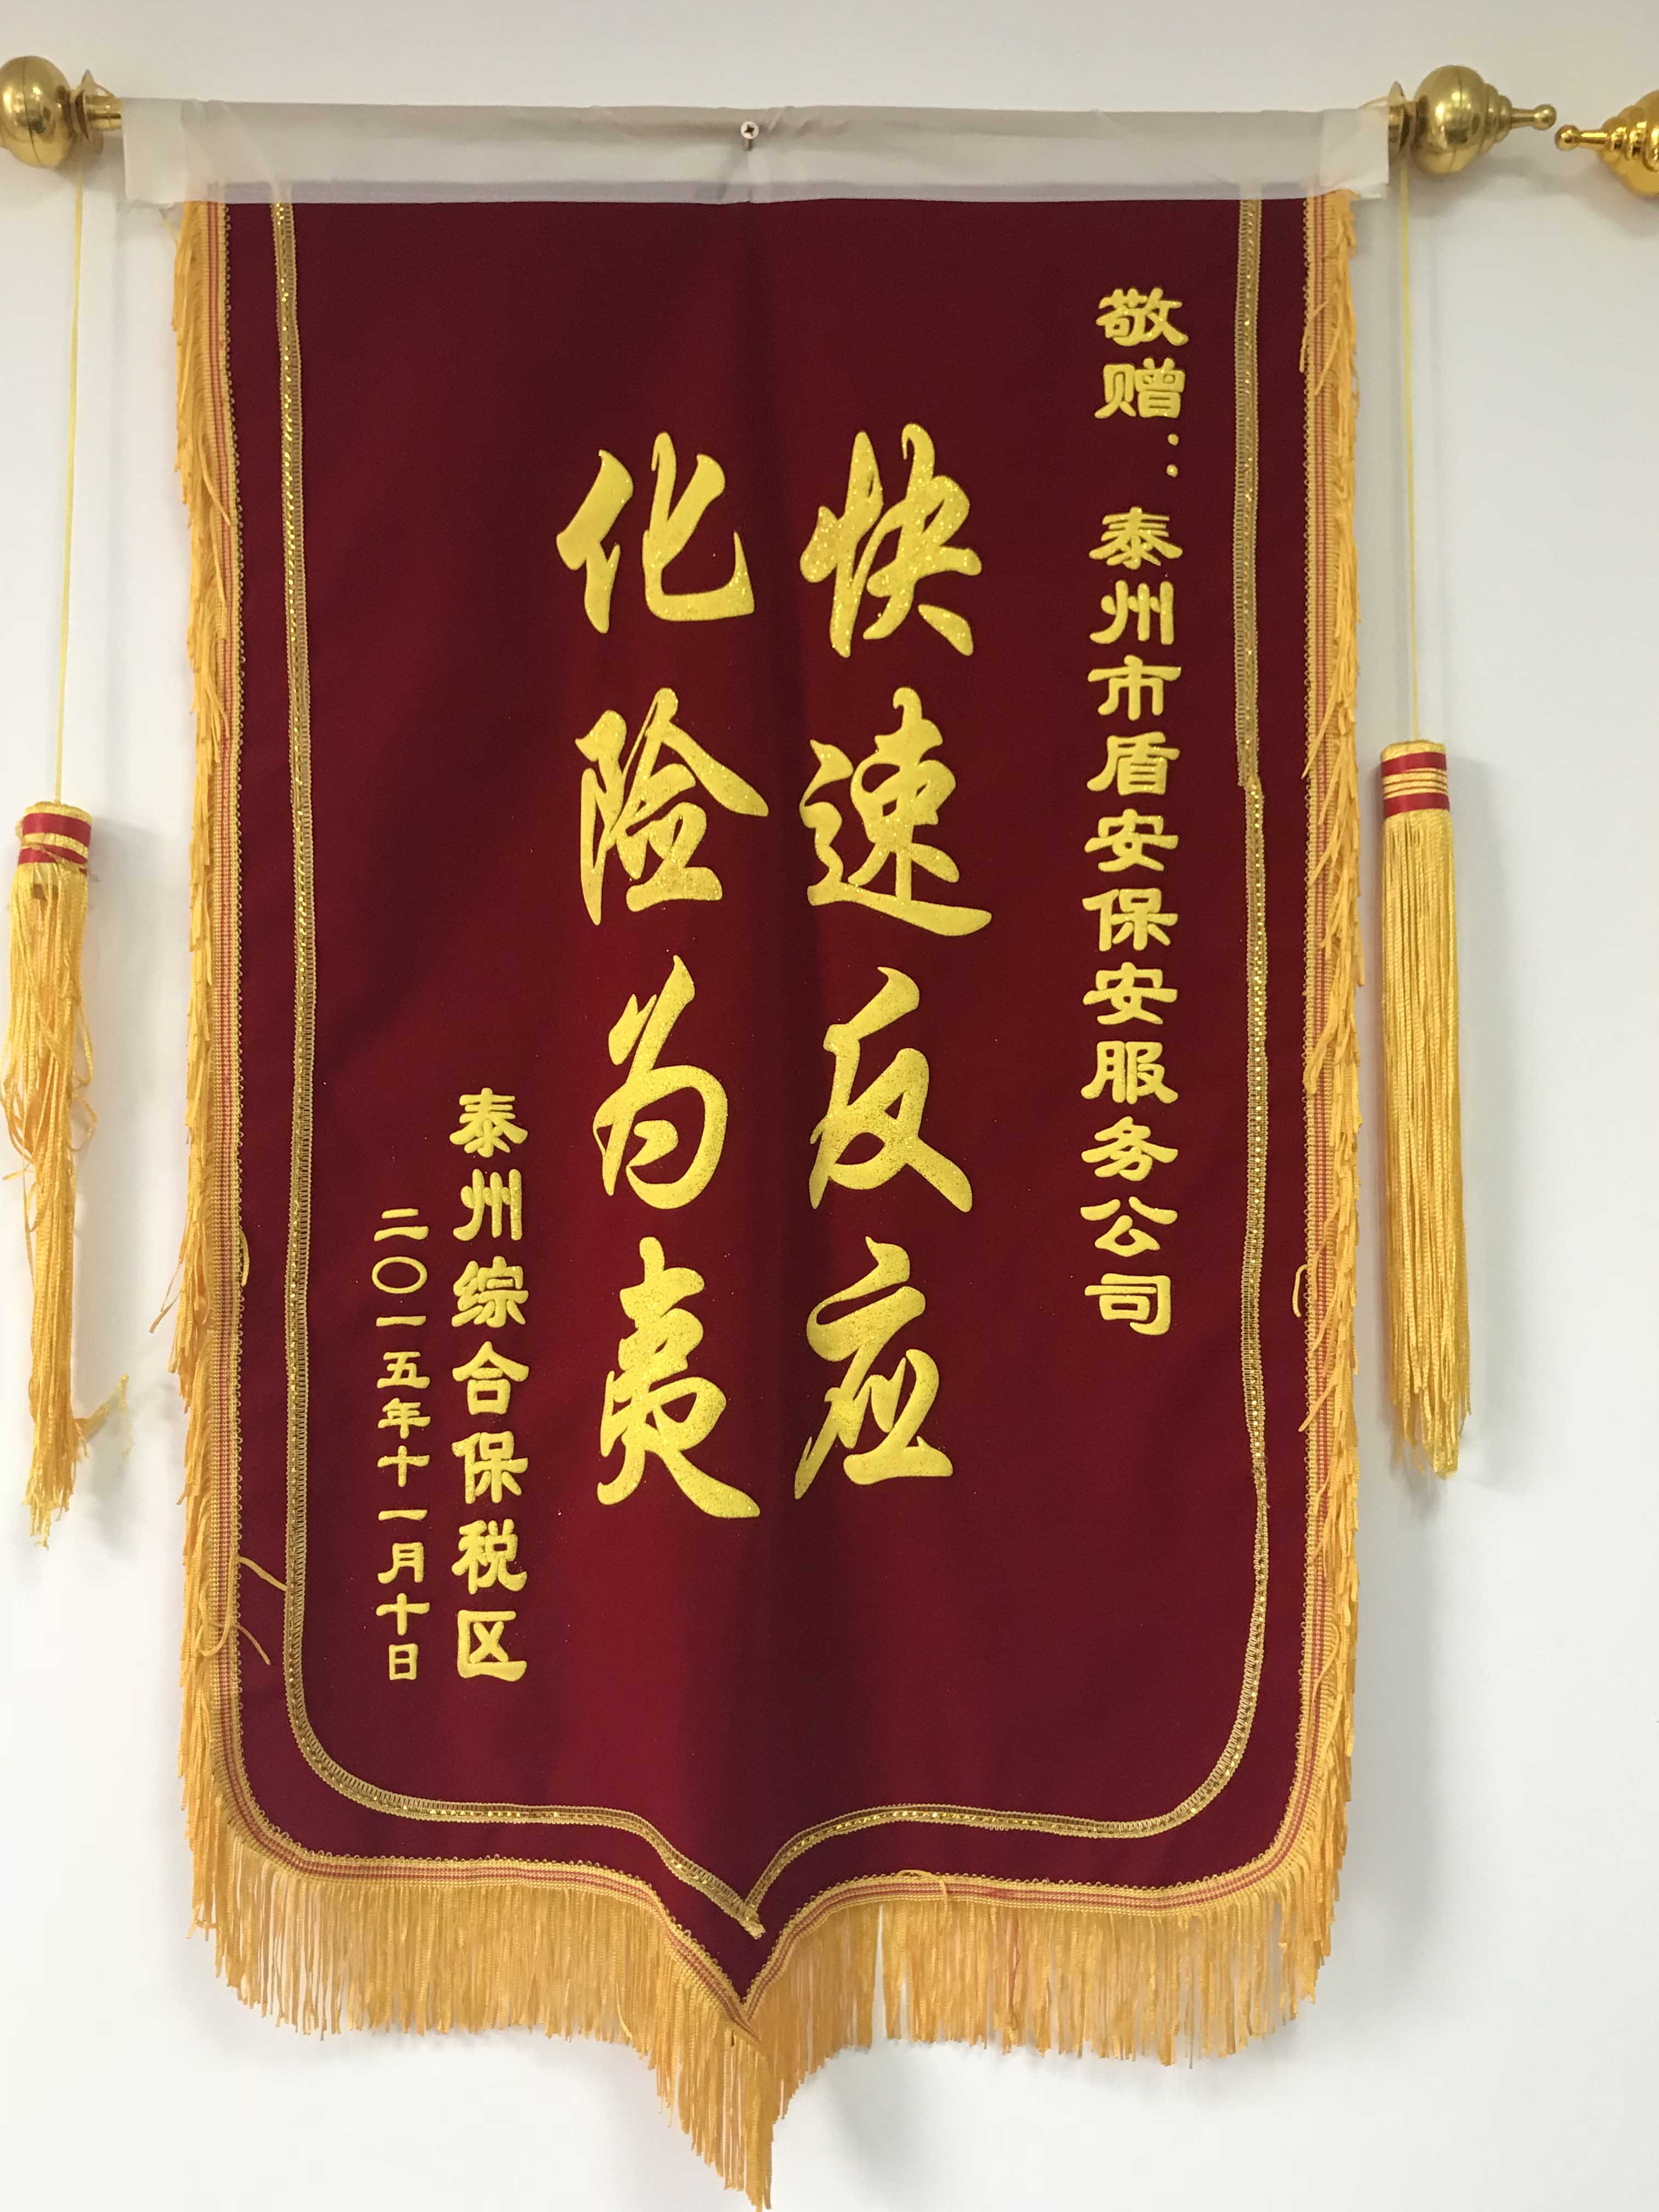 敬赠：泰州市盾安保安服务公司
快速反应
化险为夷
泰州综合保税区
二〇一五年十一月十日